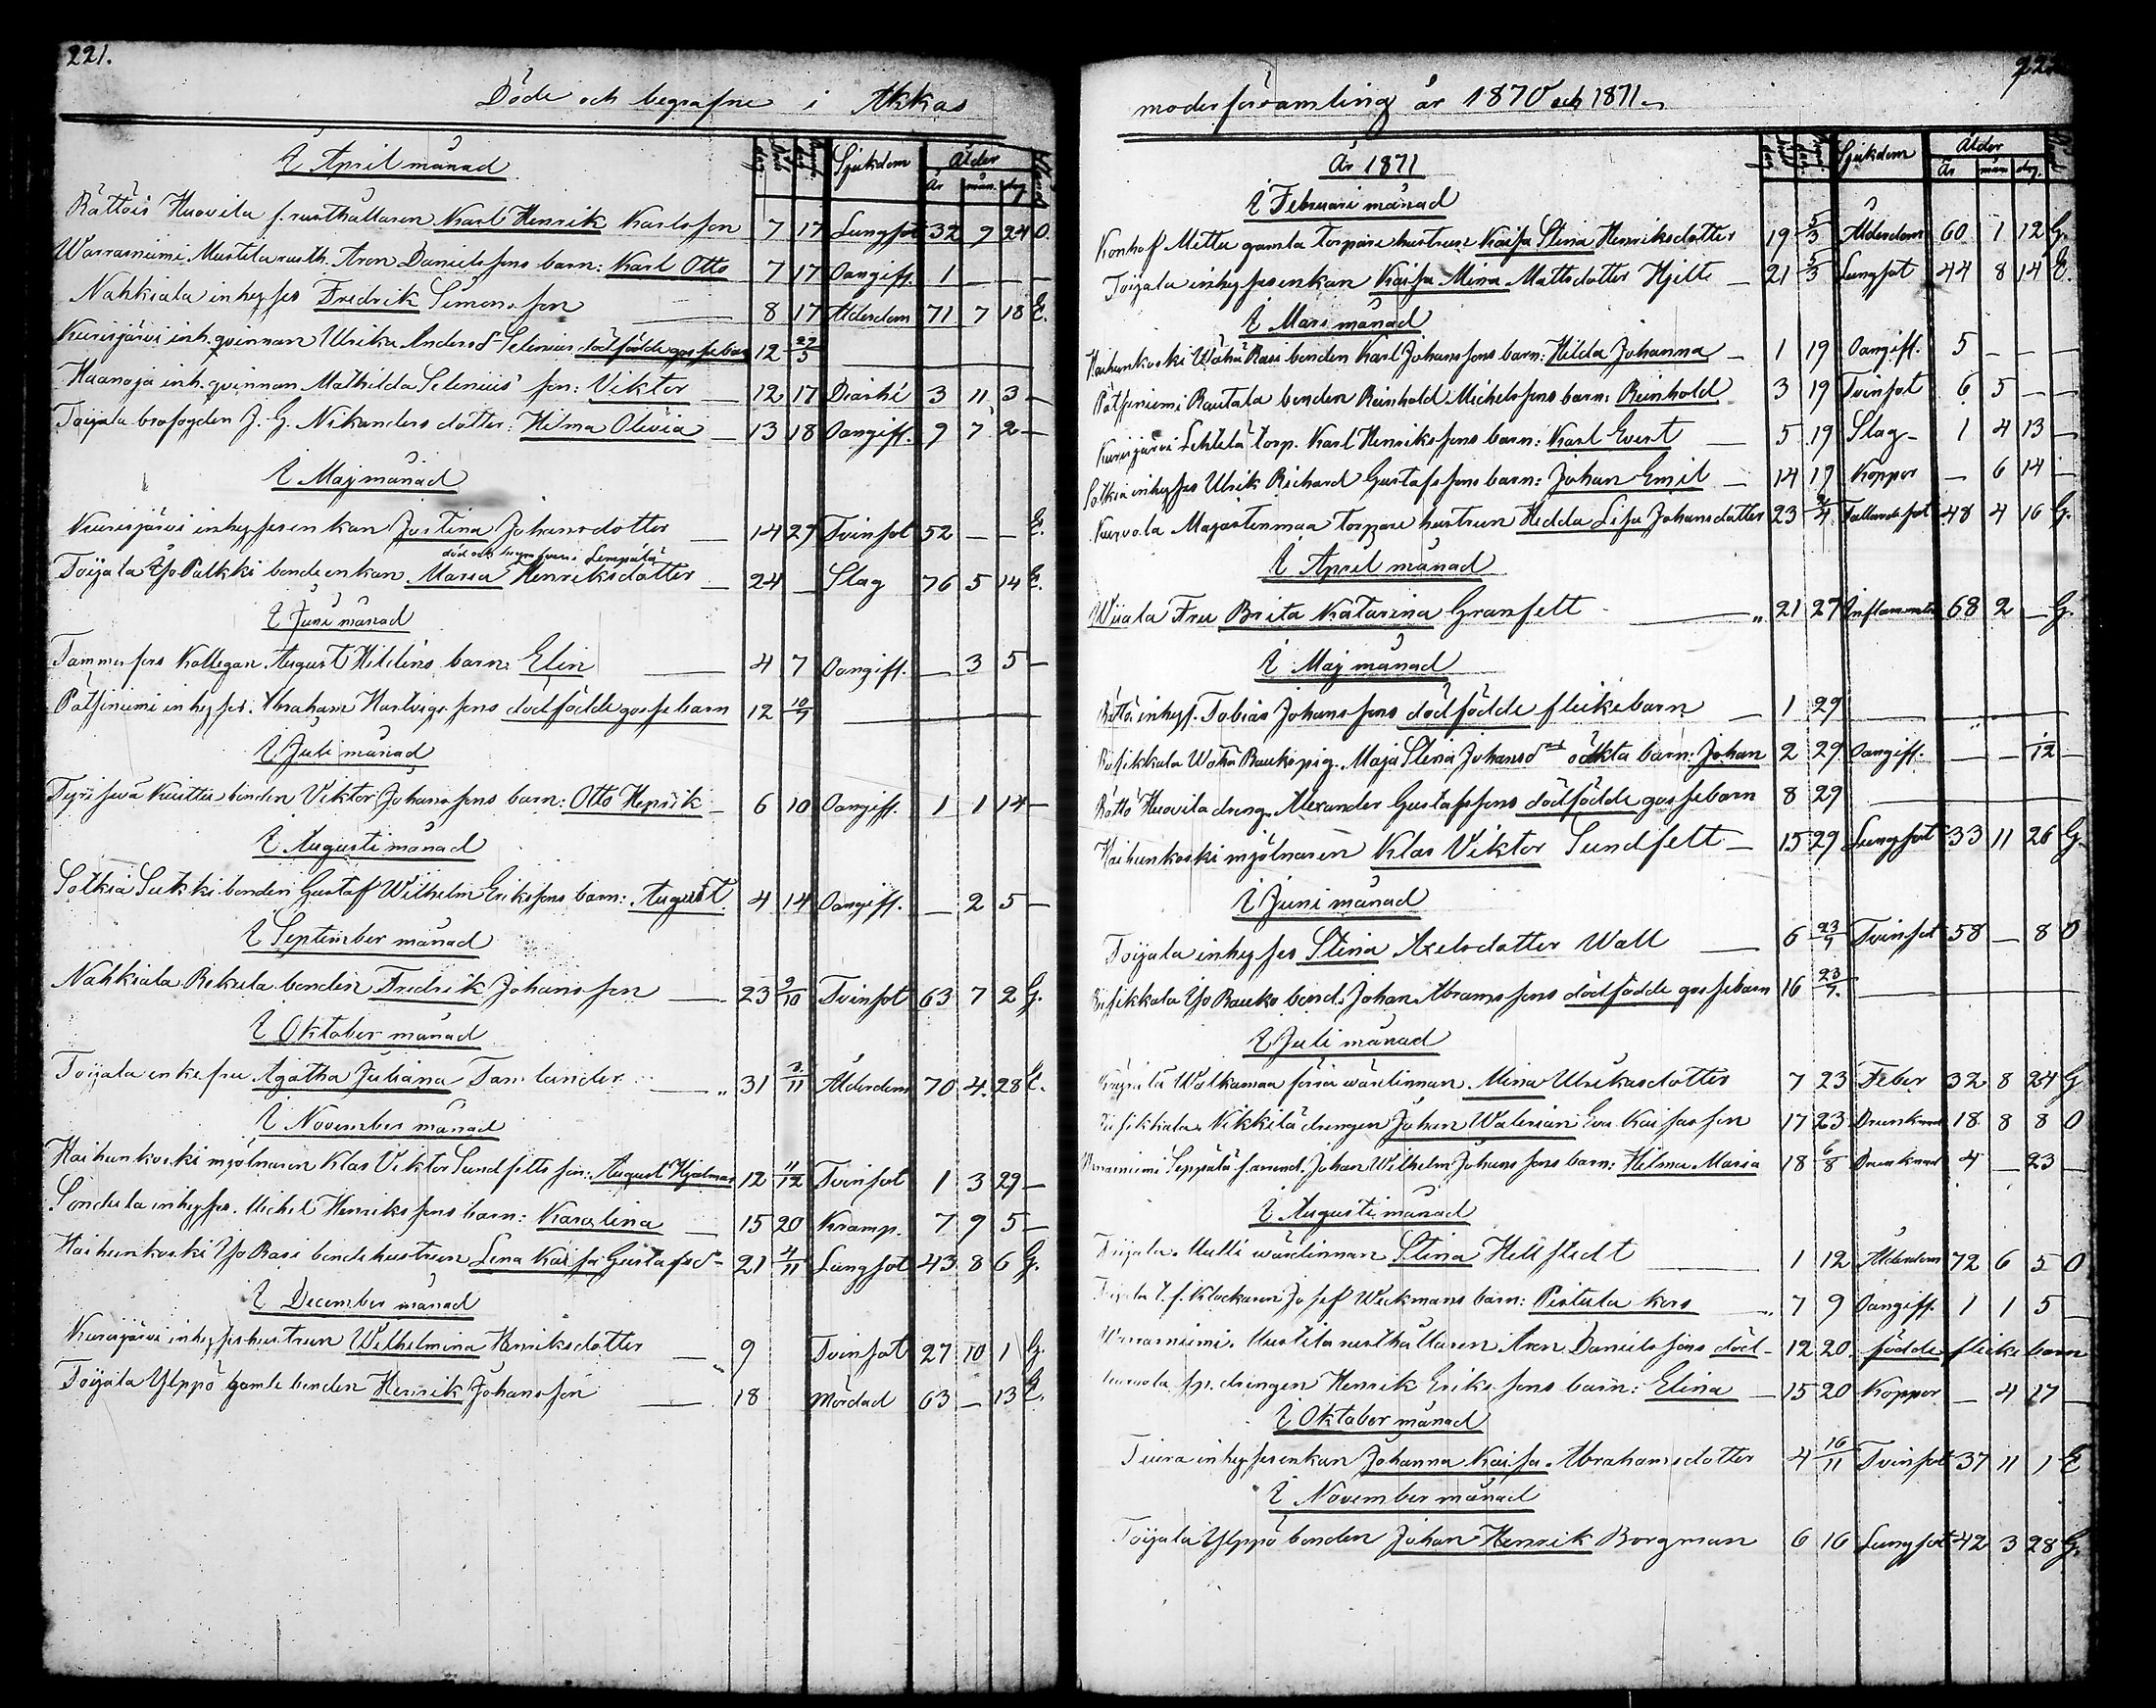 221.
Döde och begrafne i Akkas
I April månad
Sjukdom Ålder
År mån. dag
Rättöis Huovila f. rusthållaren Karl Henrik Karlsson 7 17 Lungsot 32 9 24 O.
Warrasniemi Mustila rusth. Aron Danielssons barn: Karl Otto 7 17 Oangiff. 1 — — —
Nahkiala inhyses Fredrik Simonsson 8 17 Ålderdom 71 7 18 E.
Kurisjärvi inh. qvinnan Ulrika Andersd. Selenius dödfödde gossebarn 12 29/5
Haanoja inh. qvinnan Mathilda Selenius' son: Viktor 12 17 3 11 3 —
Toijala brofogden J. G. Nikanders dotter: Hilma Olivia 13 18 Oangiff. 9 7 2 —
I Maj månad
Kurisjärvi inhysesenkan Justina Johansdotter 14 29 Tvinsot 52 — — E.
död och begrafven i Lempälä
Toijala Yli Pulkki bondeenkan Maria Henriksdotter 24 — Slag 76 5 14 E.
I Juni månad
Tammerfors Kollegan August Hildéns barn: Elin 4 7 Oangiff. — 3 5 —
Pätsiniemi inhyses. Abraham Hartvigssons dödfödde gossebarn 12 10/7
I Juli månad
bonden Viktor Johanssons barn: Otto Henrik 6 10 Oangiff. 1 1 14 —
I Augusti månad
Sotkia Sukki bonden Gustaf Wilhelm Erikssons barn: August 4 14 Oangiff. — 2 5 —
I September månad
Nahkiala Rekula bonden Fredrik Johansson 23 9/10 Tvinsot 63 7 2 G.
I Oktober månad
Toijala enkefru Agatha Juliana Tamlander 31 2/11 Ålderdom 70 4 28 E.
I November månad
Kaihunkoski mjölnaren Klas Viktor Sundfelts son: August Hjalmar 12 11/12 Tvinsot 1 3 29 —
Sondula inhyses. Michel Henrikssons barn: Karolina 15 20 Kramp. 7 9 5 —
Kaihunkoski Yli Rasi bondehustrun Lena Kaisa Gustafsd. 21 4/11 Lungsot 43 8 6 G.
I December månad
Kurisjärvi inhyseshustrun Wilhelmina Henriksdotter 9 Tvinsot 27 10 1 G.
Toijala Ylppö gamle bonden Henrik Johansson 18 Mördad 63 — 13 E.
moderförsamling år 1870 och 1871.
År 1871
Sjukdom Ålder
År mån dag.
I Februari månad
Konhof Mettu gamla Torpare hustrun Kaisa Stina Henriksdotter 19 5/3 Ålderdom 60 1 12 G.
Toijala inhysesenkan Kaisa Mina Mattsdotter Hjelt 21 5/3 Lungsot 44 8 14 E.
I Mars månad
Kaihunkoski Wähä Rasi bonden Karl Johanssons barn: Hilda Johanna 1 19 Oangiff. 5 — — —
Pätsiniemi Rautala bonden Reinhold Michelssons barn: Reinhold 3 19 Tvinsot 6 5 — —
Kurisjärvi Lehtelä torp. Karl Henrikssons barn: Karl Evert 5 19 Slag 1 4 13 —
Sotkia inhyses Ulrik Richard Gustafssons barn: Johan Emil 14 19 Koppor — 6 14 —
Kurvola Majastenmaa torpare hustrun Hedda Lisa Johansdotter 23 2/4 Fallandesot 48 4 16 G.
I April månad
Wiiala Fru Brita Katarina Granfelt 21 27 Inflammation 68 2 — G.
I Maj månad
Rättö inhys. Tobias Johanssons dödfödde flickebarn 1 29
Wähä Rauko pig. Maja Stina Johansd. oäkta barn: Johan 2 29 Oangiff. — — 12 —
Rättö Huovila dreng. Alexander Gustafssons dödfödde gossebarn 8 29
Kaihunkoski mjölnaren Klas Viktor Sundfelt 15 29 Lungsot 33 11 26 G.
I Juni månad
Toijala inhyses Stina Axelsdotter Wall 6 23/7 Tvinsot 58 — 8 O
Yli Rauko bond. Johan Abramssons dödfödde gossebarn 16 23/7.
I Juli månad
Walkamaa förra wärdinnan. Mina Ulriksdotter 7 23 Feber 32 8 24 G
Nikkilä drengen Johan Walerian Eva Kaisasson 17 23 Drunknad 18 8 8 O
Seppälä f. arrend. Johan Wilhelm Johanssons barn: Helma Maria 18 6/8 Drunknad 4 — 23 —
I Augusti månad
Toijala. Multi wärdinnan Stina Hellstedt 1 12 Ålderdom 72 6 5 O
Toijala t. f. Klockaren Josef Wickmans barn: 7 9 Oangiff. 1 1 5 —
Warrasniemi. Mustila rusthållaren Aron Danielssons död- 12 20. födde flickebarn
drengen Henrik Erikssons barn: Elina 15 20 Koppor — 4 17 —
I Oktober månad
inhysesenkan Johanna Kaisa Abrahamsdotter 4 16/11 Tvinsot 37 11 1 E
I November månad
Toijala Ylppö bonden Johan Henrik Borgman 6 16 Lungsot 42 3 28 G.